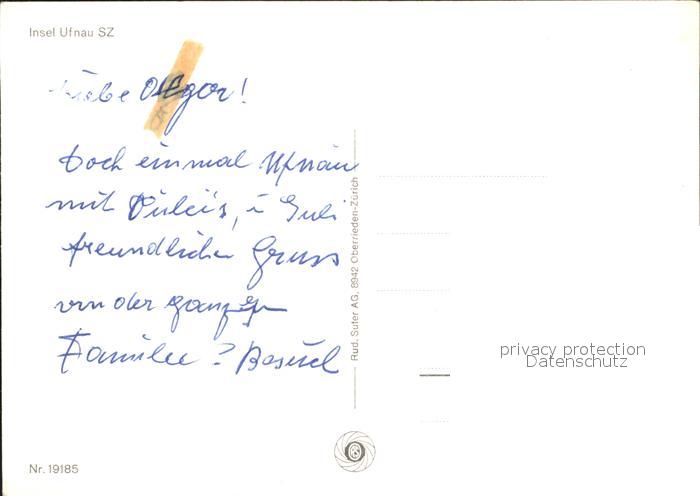 Insel Ufnau SZ
Liebe
Doch einmal Ufnau
mit
freundlicher Gruss
von der ganzen
Familie ?
Rud. Suter AG, 8942 Oberrieden-Zürich
privacy protection
Datenschutz
Nr. 19185